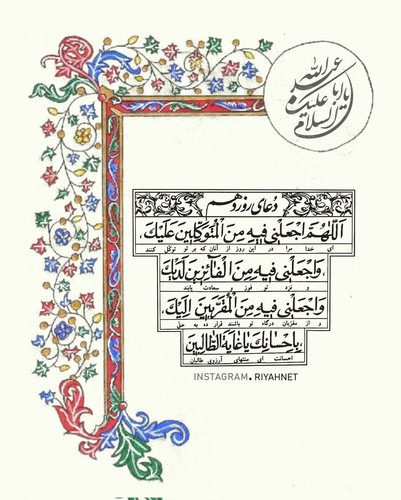 یا اباعبدالله
علیک السلام
دعای روز دهم
اَللّهُمَّ اجْعَلْنی فیهِ مِنَ الْمُتَوَکِّلینَ عَلَیْکَ
ای خدا مرا در این روز از آنان که بر تو توکل کنند
وَاجْعَلْنی فیهِ مِنَ الْفاَّئِزینَ لَدَیْکَ
و نزد تو فوز و سعادت یابند
وَاجْعَلْنی فیهِ مِنَ الْمُقَرَّبینَ اِلَیْکَ،
و از مقربان درگاه تو باشند قرار ده به حق
بِاِحْسانِکَ یا غایَةَ الطّالِبینَ
احسانت ای منتهای آرزوی طالبان
INSTAGRAM. RIYAHNET